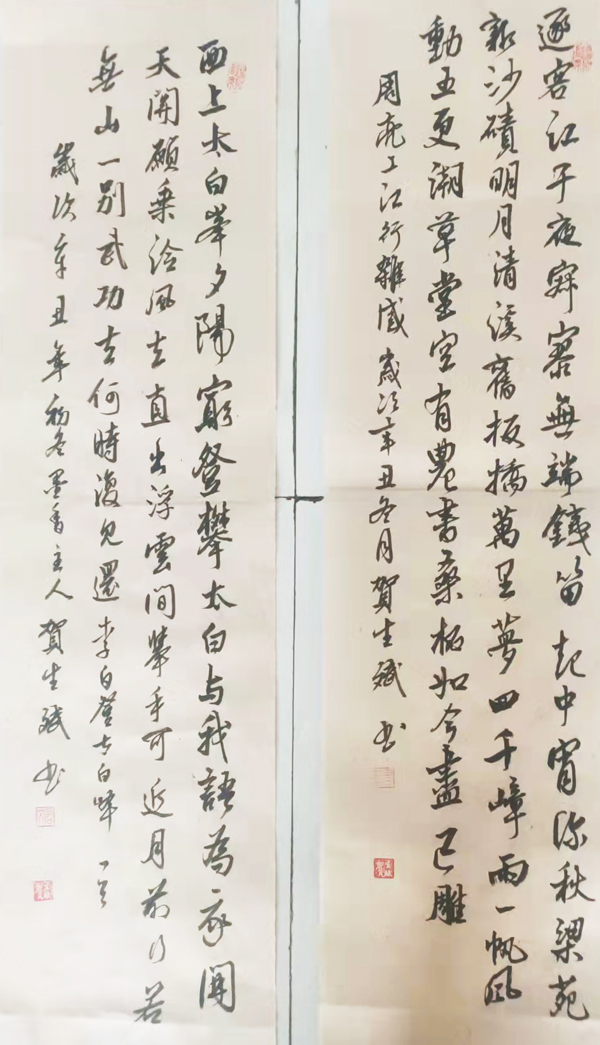 逐客江干夜寂寥無端鐵笛起中宵深秋梁苑
沙磧明月清溪舊板橋萬里夢回千嶂雨一帆風
動五更潮草堂空有農書桑柘如今盡已雕
周亮工江行雜感 歲次辛丑冬月賀生斌书
西上太白峯夕陽窮登攀太白与我語為我開
天關願乘泠風去直出浮雲間舉手可近月前行若
無山一別武功去何時復見還李白登太白峰一首
歲次辛丑年初冬墨香主人賀生斌书